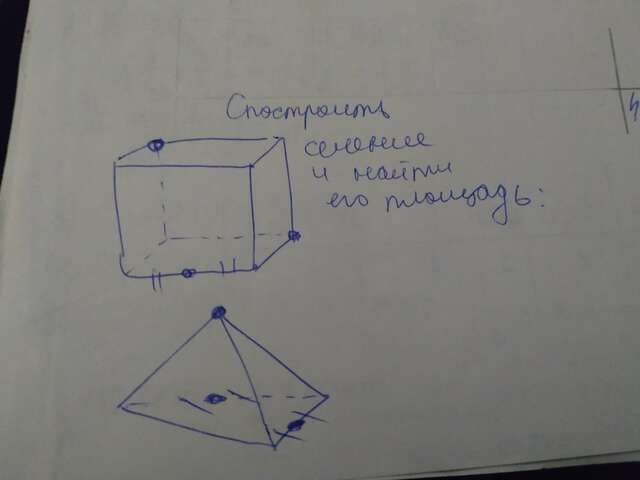 Спостроить
сечение
и найти
его площадь: